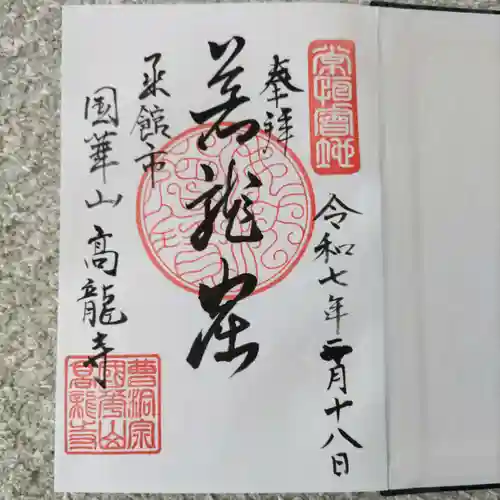 奉拝
令和七年二月十八日
蒼龍
函館市
國華山 高龍寺
曹洞宗
國華山
高龍寺